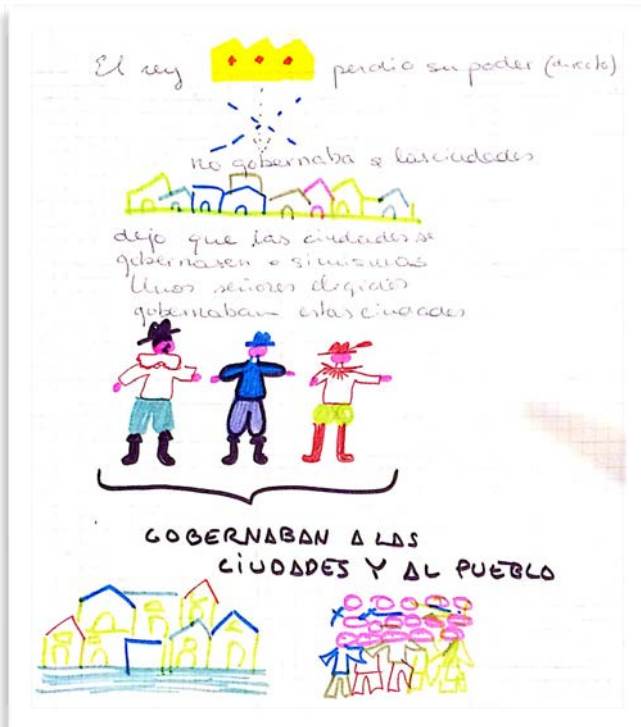 El rey perdio su poder (directo)
no gobernaba a las ciudades
dejo que las ciudades se
gobernasen a si mismas
Unos señores elegidos
gobernaban estas ciudades
GOBERNABAN A LAS
CIUDADES Y AL PUEBLO